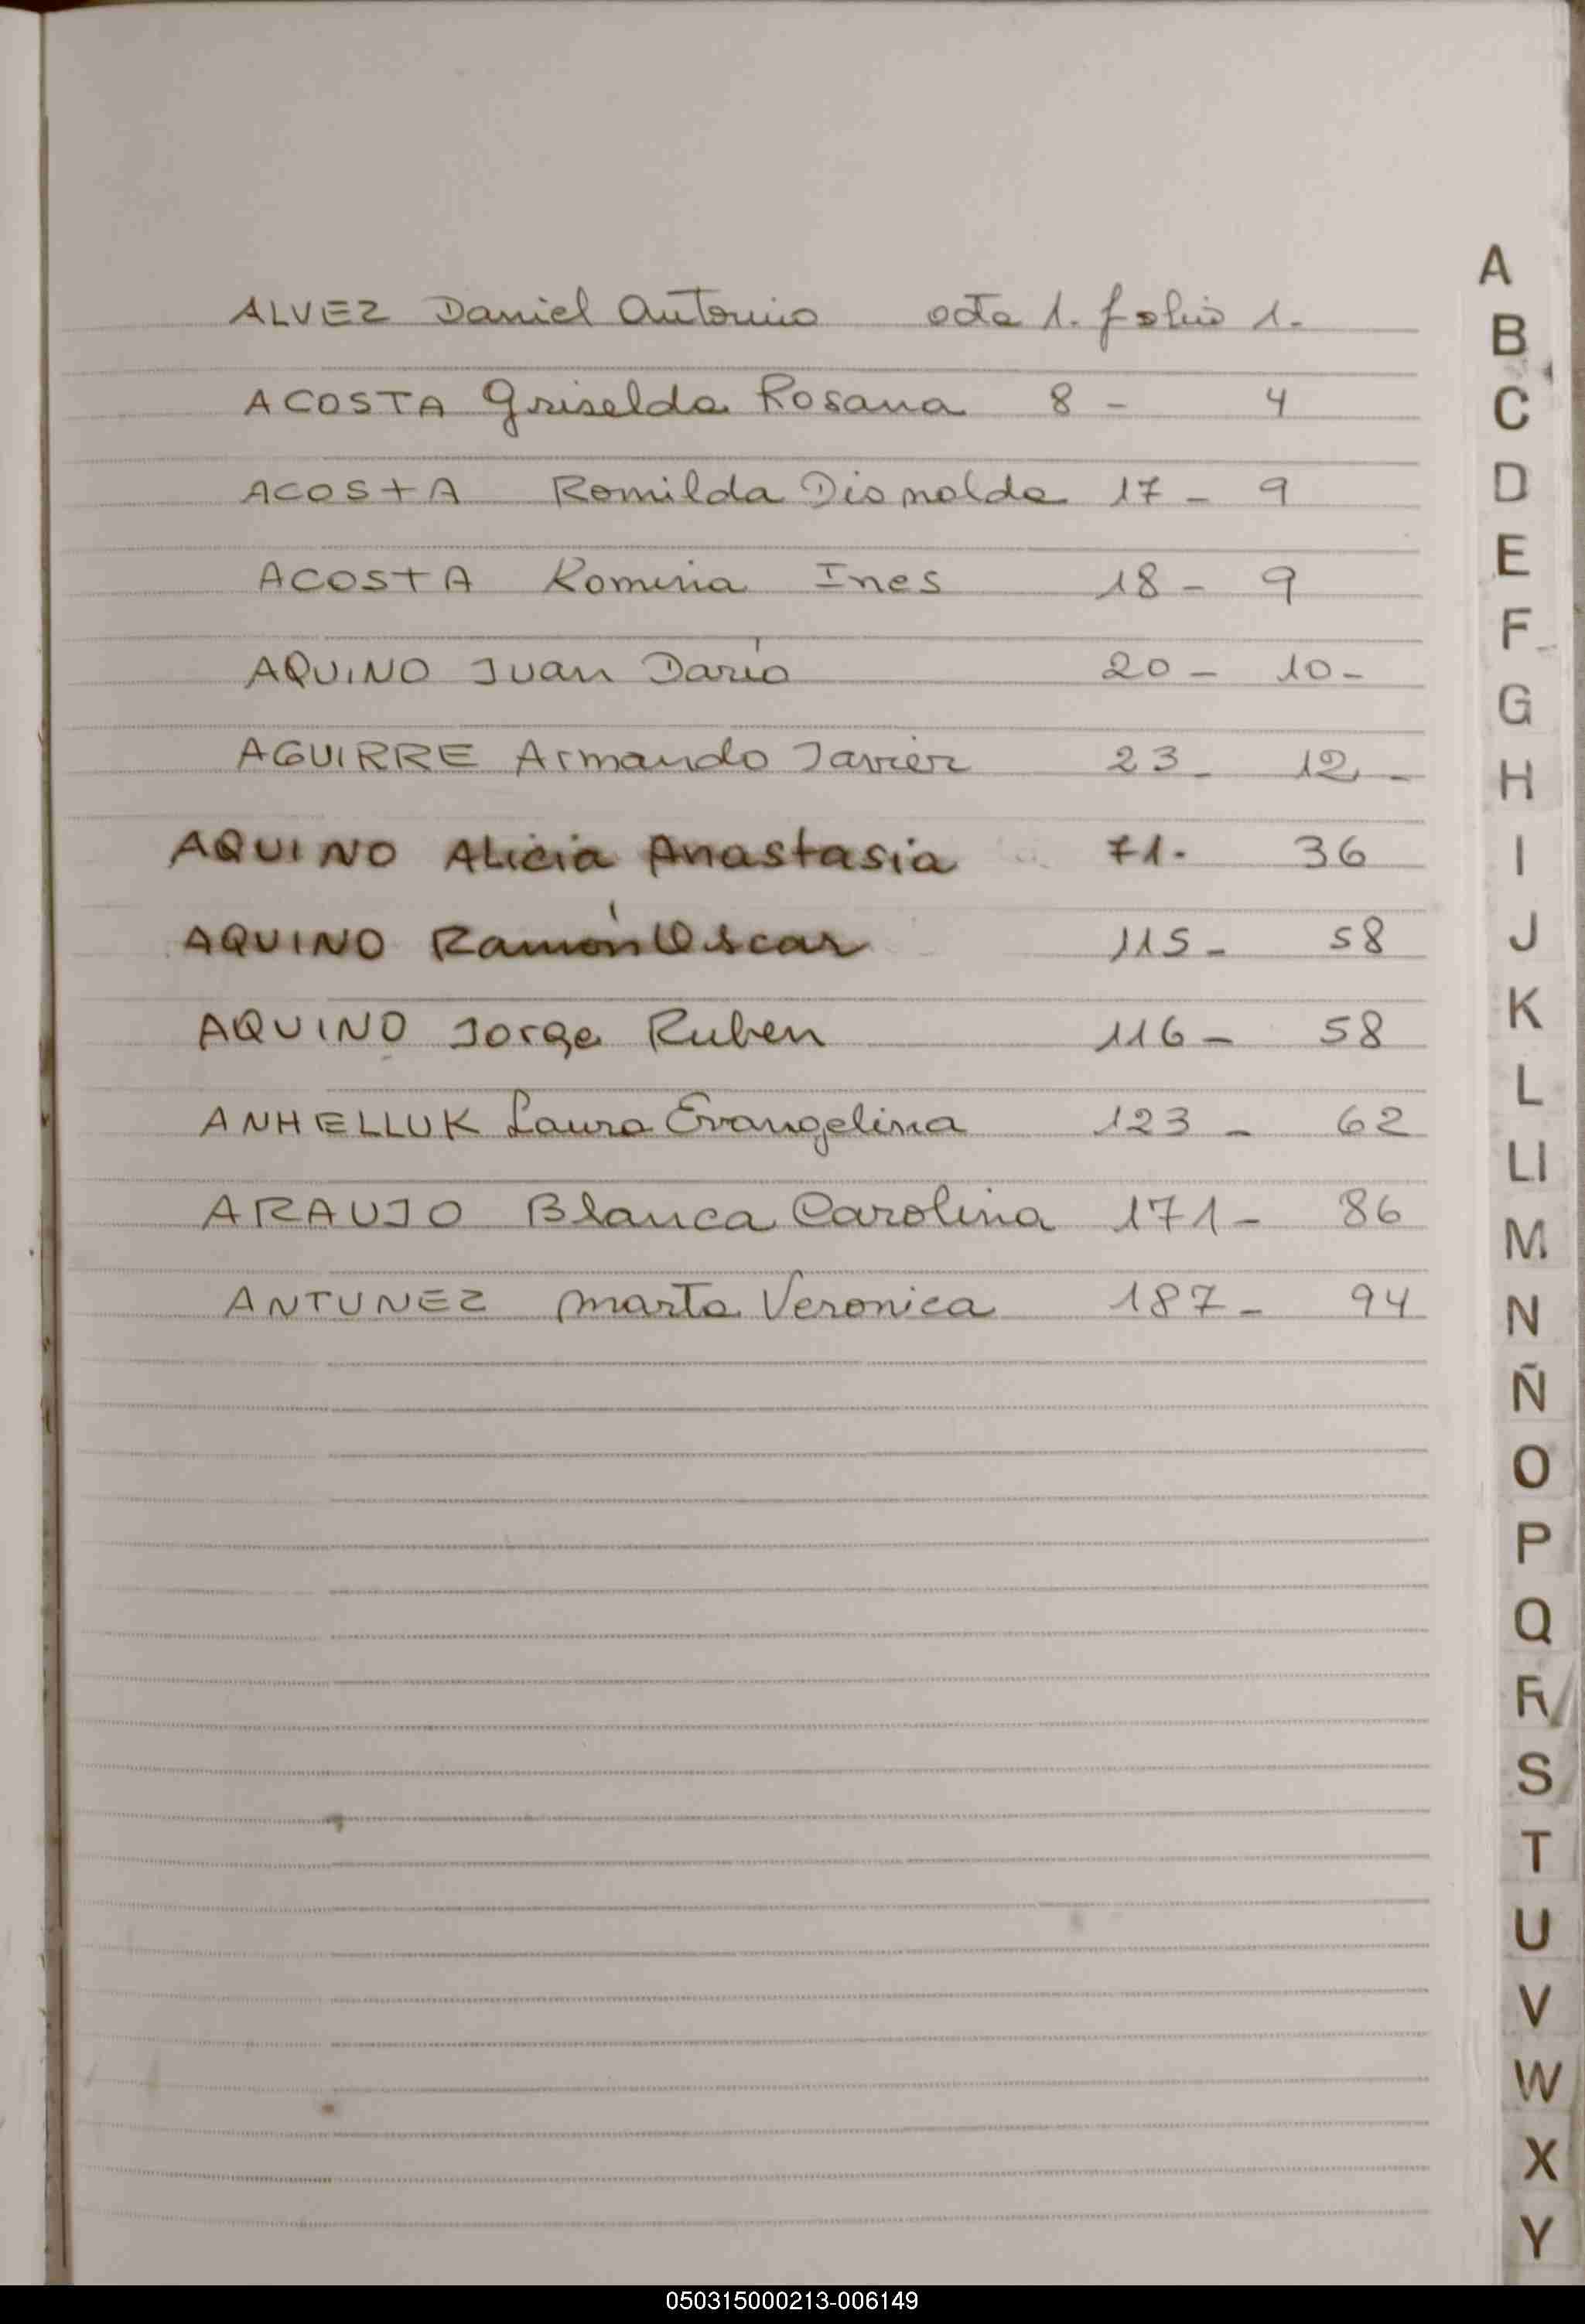 ALVEZ Daniel Antonio acta 1. folio 1.
ACOSTA Griselda Rosana 8 - 4
ACOSTA Romilda Dionolda 17 - 9
ACOSTA Romina Ines 18 - 9
AQUINO Juan Darío 20 - 10 -
AGUIRRE Armando Javier 23 - 12 -
AQUINO Alicia Anastasia 71 - 36
AQUINO Ramón Oscar 115 - 58
AQUINO Jorge Ruben 116 - 58
ANHELLUK Laura Evangelina 123 - 62
ARAUJO Blanca Carolina 171 - 86
ANTUNEZ Marta Veronica 187 - 94
A
B
C
D
E
F
G
H
I
J
K
L
Ll
M
N
Ñ
O
P
Q
R
S
T
U
V
W
X
Y
050315000213-006149